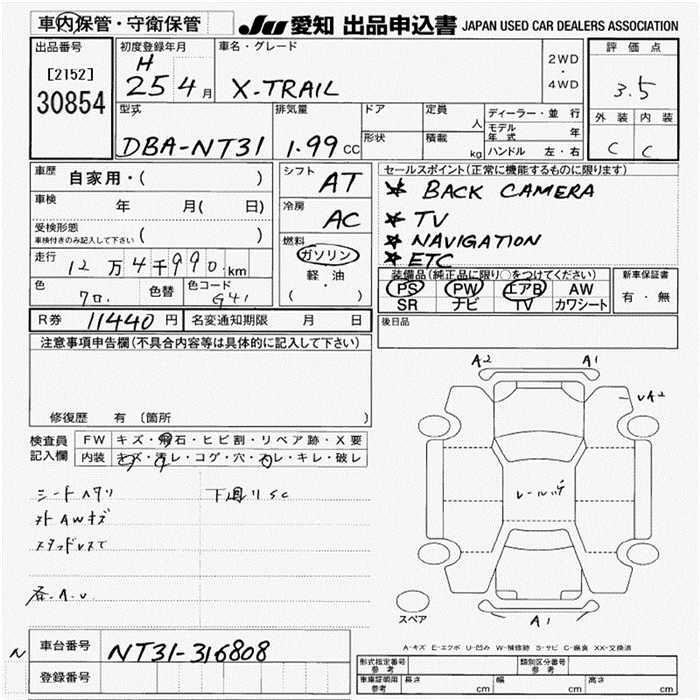 車内保管・守衛保管
JU 愛知 出品申込書 JAPAN USED CAR DEALERS ASSOCIATION
出品番号
[2152]
30854
初度登録年月
H
25 4月
車名・グレード
X-TRAIL
2WD
・
4WD
評価点
3.5
外装 内装
C C
型式
DBA-NT31
排気量
1.99 CC
ドア
形状
定員
人
積載
kg
ディーラー・並行
モデル年式 年
ハンドル 左・右
車歴 自家用・( )
車検 年 月( 日)
受検形態
車検付きのみ記入して下さい ( )
走行 12万4千990km
色 クロ. 色替 色コード G41
シフト
AT
冷房
AC
燃料
ガソリン
・
軽油
( )
セールスポイント(正常に機能するものに限ります)
★ BACK CAMERA
★ TV
★ NAVIGATION
★ ETC
装備品(純正品に限り○をつけてください)
PS PW エアB AW
SR ナビ TV カワシート
新車保証書
有・無
R券 11440 円 名変通知期限 月 日
後日品
注意事項申告欄(不具合内容等は具体的に記入して下さい)
修復歴 有 〔箇所 〕
検査員記入欄
FW キズ・飛石・ヒビ割・リペア跡・X要
内装 キズ・汚レ・コゲ・穴・スレ・キレ・破レ
シートヘタリ 下廻りSC
外AWキズ
スタッドレスて
各.A.U
A2 A1
UA2
レールサ
A1
スペア
A-キズ E-エクボ U-凹み W-補修跡 S-サビ C-腐食 XX-交換済
N
車台番号 NT31-316808
登録番号
形式指定番号 参考
類別区分番号 参考
車庫証明用 参考 長さ cm 幅 cm 高さ cm